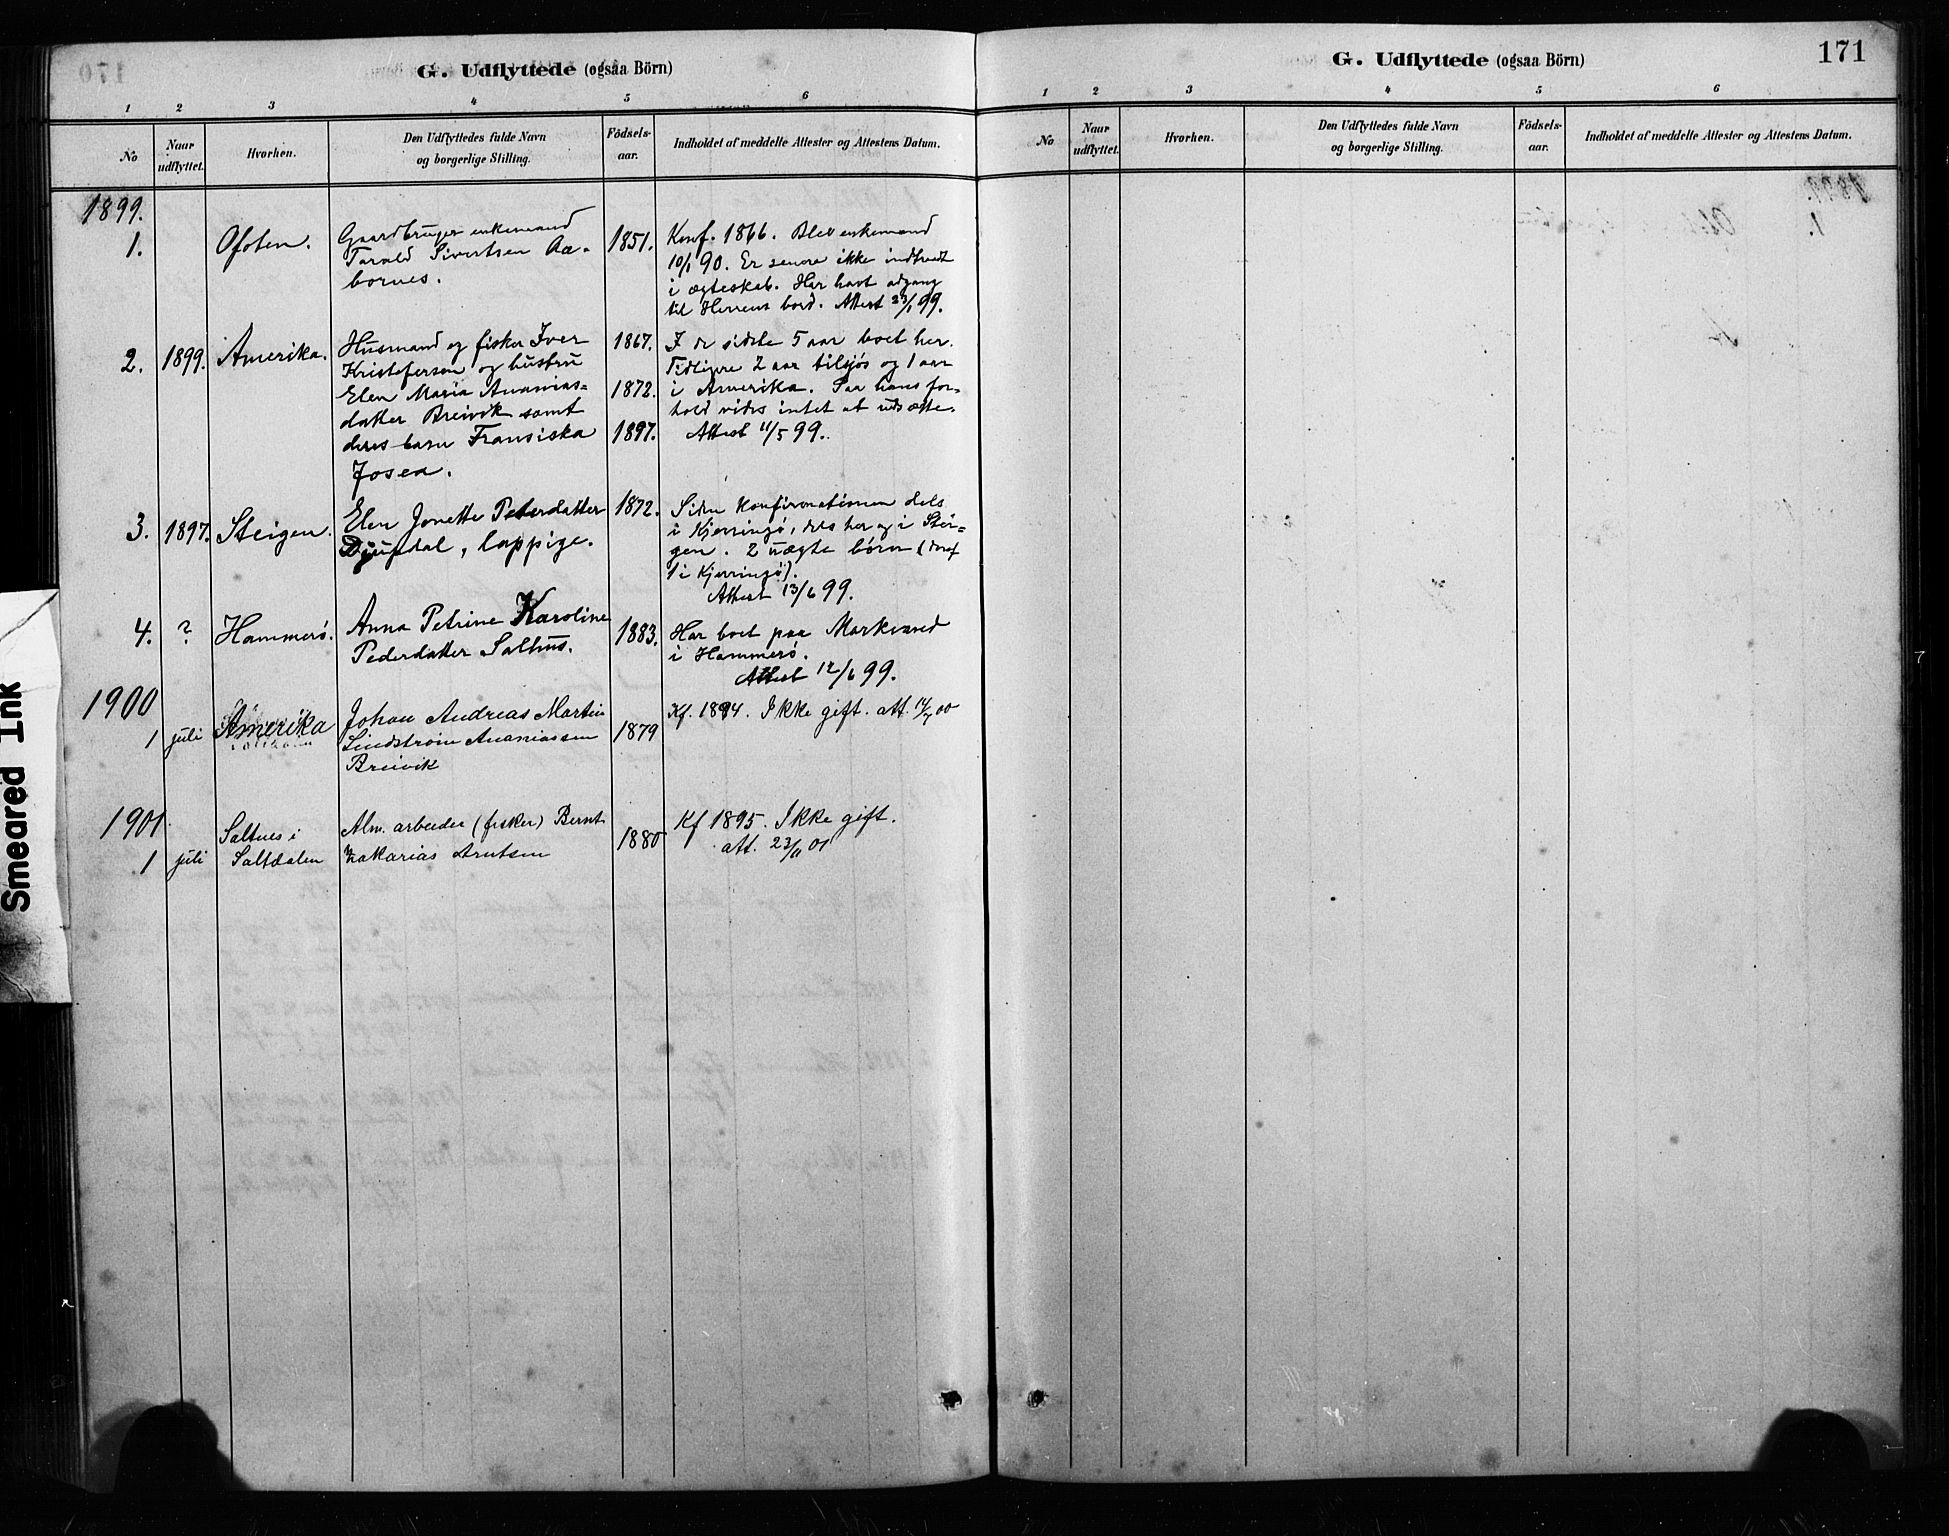 G. Udflyttede (ogsaa Börn)
1 2 3 4 5 6
No
Naar udflyttet.
Hvorhen.
Den Udflyttedes fulde Navn og borgerlige Stilling.
Födsels-aar.
Indholdet af meddelte Attester og Attestens Datum.
1899.
1.
Ofoten.
Gaardbruger enkemand
Tarald Sivertsen Aa-
bornes.
1851.
Konf. 1866. Blev enkemand
10/1 90. Er senere ikke indtraadt
i ægteskab. Har havt adgang
til Herrens bord. Attest 23/1 99.
2.
1899.
Amerika.
Husmand og fisker Iver
Kristofersen og hustru
Elen Maria Ananias-
datter Breivik samt
deres barn Fransiska
Josea.
1867.
1872.
1897.
I de sidste 5 aar boet her.
Tidligere 2 aar tilsjøs og 1 aar
i Amerika. Paa hans for-
hold vides intet at udsætte.
Attest 11/5 99.
3.
1897.
Steigen.
Elen Jonette Pedersdatter
Djupdal, lappige.
1872.
Siden konfirmationen dels
i Kjerringø, dels her og i Stei-
gen. 2 uægte børn (deraf
1 i Kjerringø).
Attest 13/6 99.
4.
?
Hammerø.
Anna Petrine Karoline
Pedersdatter Salhus.
1883.
Har boet paa Markvand
i Hammerø.
Attest 12/6 99.
1900
1
juli
Amerika
Johan Andreas Martin
Lindstrøm Ananiassen
Breivik
1879
Kf. 1894. Ikke gift. att. 14/7 00
1901
1
juli
Saltnes i
Saltdalen
Alm. arbeider (fisker) Bernt
Zakarias Arntsen
1880
Kf 1895. Ikke gift.
att. 23/11 01
G. Udflyttede (ogsaa Börn)
171
1 2 3 4 5 6
No
Naar udflyttet.
Hvorhen.
Den Udflyttedes fulde Navn og borgerlige Stilling.
Födsels-aar.
Indholdet af meddelte Attester og Attestens Datum.
Smeared Ink